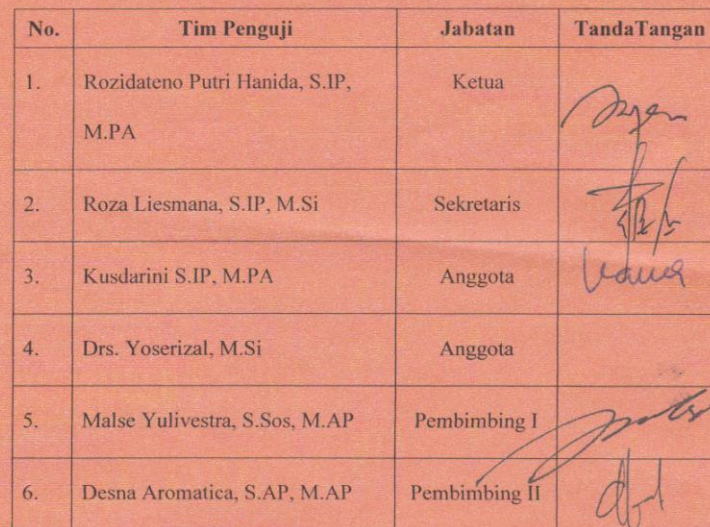 No. Tim Penguji Jabatan TandaTangan
1. Rozidateno Putri Hanida, S.IP, Ketua
M.PA
2. Roza Liesmana, S.IP, M.Si Sekretaris
3. Kusdarini S.IP, M.PA Anggota
4. Drs. Yoserizal, M.Si Anggota
5. Malse Yulivestra, S.Sos, M.AP Pembimbing I
6. Desna Aromatica, S.AP, M.AP Pembimbing II